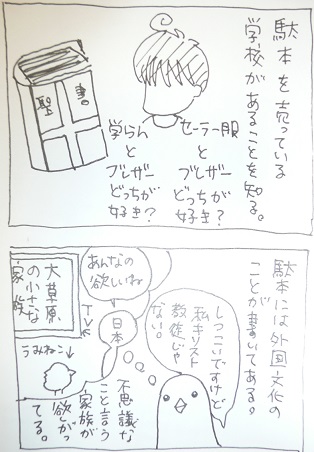 駄本を売っている
学校があることを知る。
聖書。
セーラー服
と
ブレザー
どっちが
好き？
学らん
と
ブレザー
どっちが
好き？
駄本には外国文化の
ことが書いてある。
しつこいですけど
私キリスト
教徒じゃ
ない。
あんなの
欲しいね
日本
TVく
大草原
の小さな
家族
うみねこ
不思議な
こと言う
家族が
欲しがっ
てる。